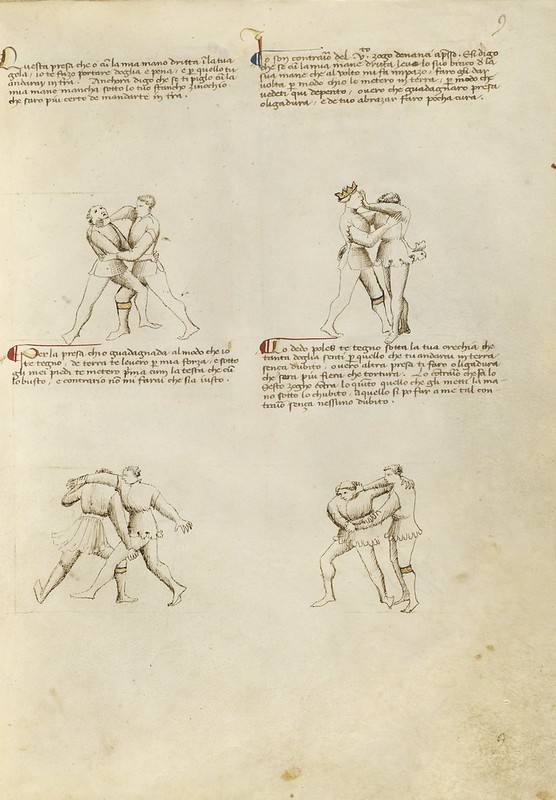 Questa presa che o cu la mia mano dritta in la tua
gola, io te fazo portare doglia e pena, e per quello tu
andaray in terra. Anchora digo che se ti piglo cu la
mia mano mancha sotto lo tuo stancho zinochio
che saro piu certo de mandarte in terra.
9
Lo son contrario del V.to zogo denanci apsso. E si digo
che se cu la mia mane dritta levo lo suo brazo de la
sua mane che al volto mi fa impazo, faro gli dar
volta per modo chio lo metero in terra, per modo che
vedeti qui depento, overo che guadagnaro presa
o ligadura, e de tuo abrazar faro pocha cura.
Per la presa chio guadagnada al modo che io
te tegno, de terra te levero per mia forza, e sotto
gli mei piedi te metero prima cum la testa che cum
lo busto, e contrario non mi farai che sia iusto.
Lo dedo poles te tegno sotta la tua orechia che
tanta doglia senti per quello che tu andarai in terra
senca dubito, o vero altra presa ti faro o ligadura
che sera piu fiera che tortura. Lo contrario che fa lo
sesto zogho contra lo quito quello che gli metti la ma-
no sotto lo chubito, aquello si po far a me tal con-
trario senca nessuno dubito.